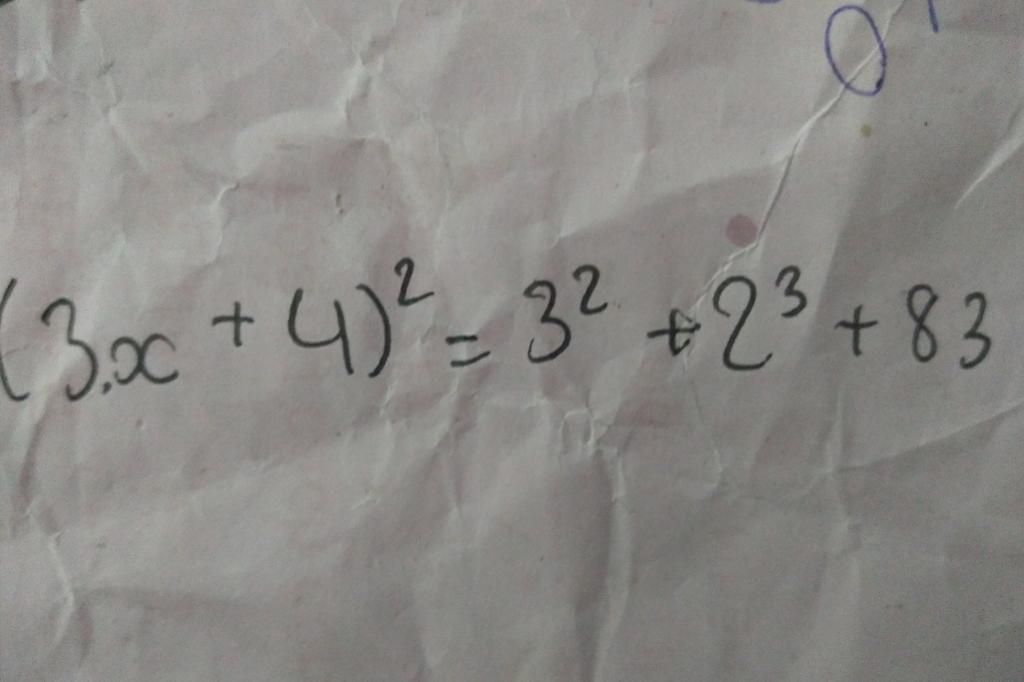 (3.x + 4)² = 3² + 2³ + 83